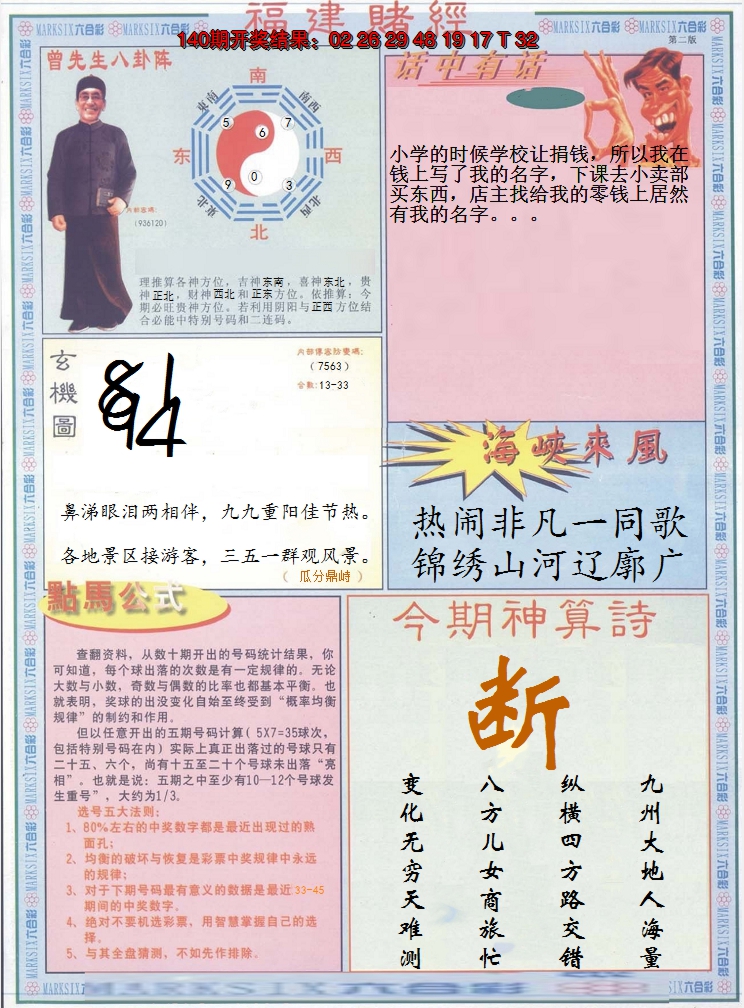 福建賭經
140期开奖结果：02 26 29 48 19 17 T 32
MARKSIX六合彩
第二版
曾先生八卦阵
南
东南
西南
5
7
6
东
西
0
9
3
東北
西北
北
内部密碼:
(936120)
理推算各神方位，吉神东南，喜神东北，贵
神正北，财神西北和正东方位。依推算：今
期必旺贵神方位。若利用阴阳与正西方位结
合必能中特别号码和二连码。
话中有话
小学的时候学校让捐钱，所以我在
钱上写了我的名字，下课去小卖部
买东西，店主找给我的零钱上居然
有我的名字。。。
玄機圖
内部傳密防變碼:
(7563)
合数:13-33
鼻涕眼泪两相伴，九九重阳佳节热。
各地景区接游客，三五一群观风景。
（ 瓜分鼎峙 ）
海峽來風
热闹非凡一同歌
锦绣山河辽廓广
點馬公式
查翻资料，从数十期开出的号码统计结果，你
可知道，每个球出落的次数是有一定规律的。无论
大数与小数，奇数与偶数的比率也都基本平衡。也
就表明，奖球的出没变化自始至终受到“概率均衡
规律”的制约和作用。
但以任意开出的五期号码计算( 5X7=35球次，
包括特别号码在内) 实际上真正出落过的号球只有
二十五、六个，尚有十五至二十个号球未出落“亮
相”。也就是说：五期之中至少有10—12个号球发
生重号”，大约为1/3。
选号五大法则：
1、80%左右的中奖数字都是最近出现过的熟
面孔；
2、均衡的破坏与恢复是彩票中奖规律中永远
的规律；
3、对于下期号码最有意义的数据是最近 33-45
期间的中奖数字。
4、绝对不要机选彩票，用智慧掌握自己的选
择。
5、与其全盘猜测，不如先作排除。
今期神算詩
断
九州大地人海量
纵横四方路交错
八方儿女商旅忙
变化无穷天难测